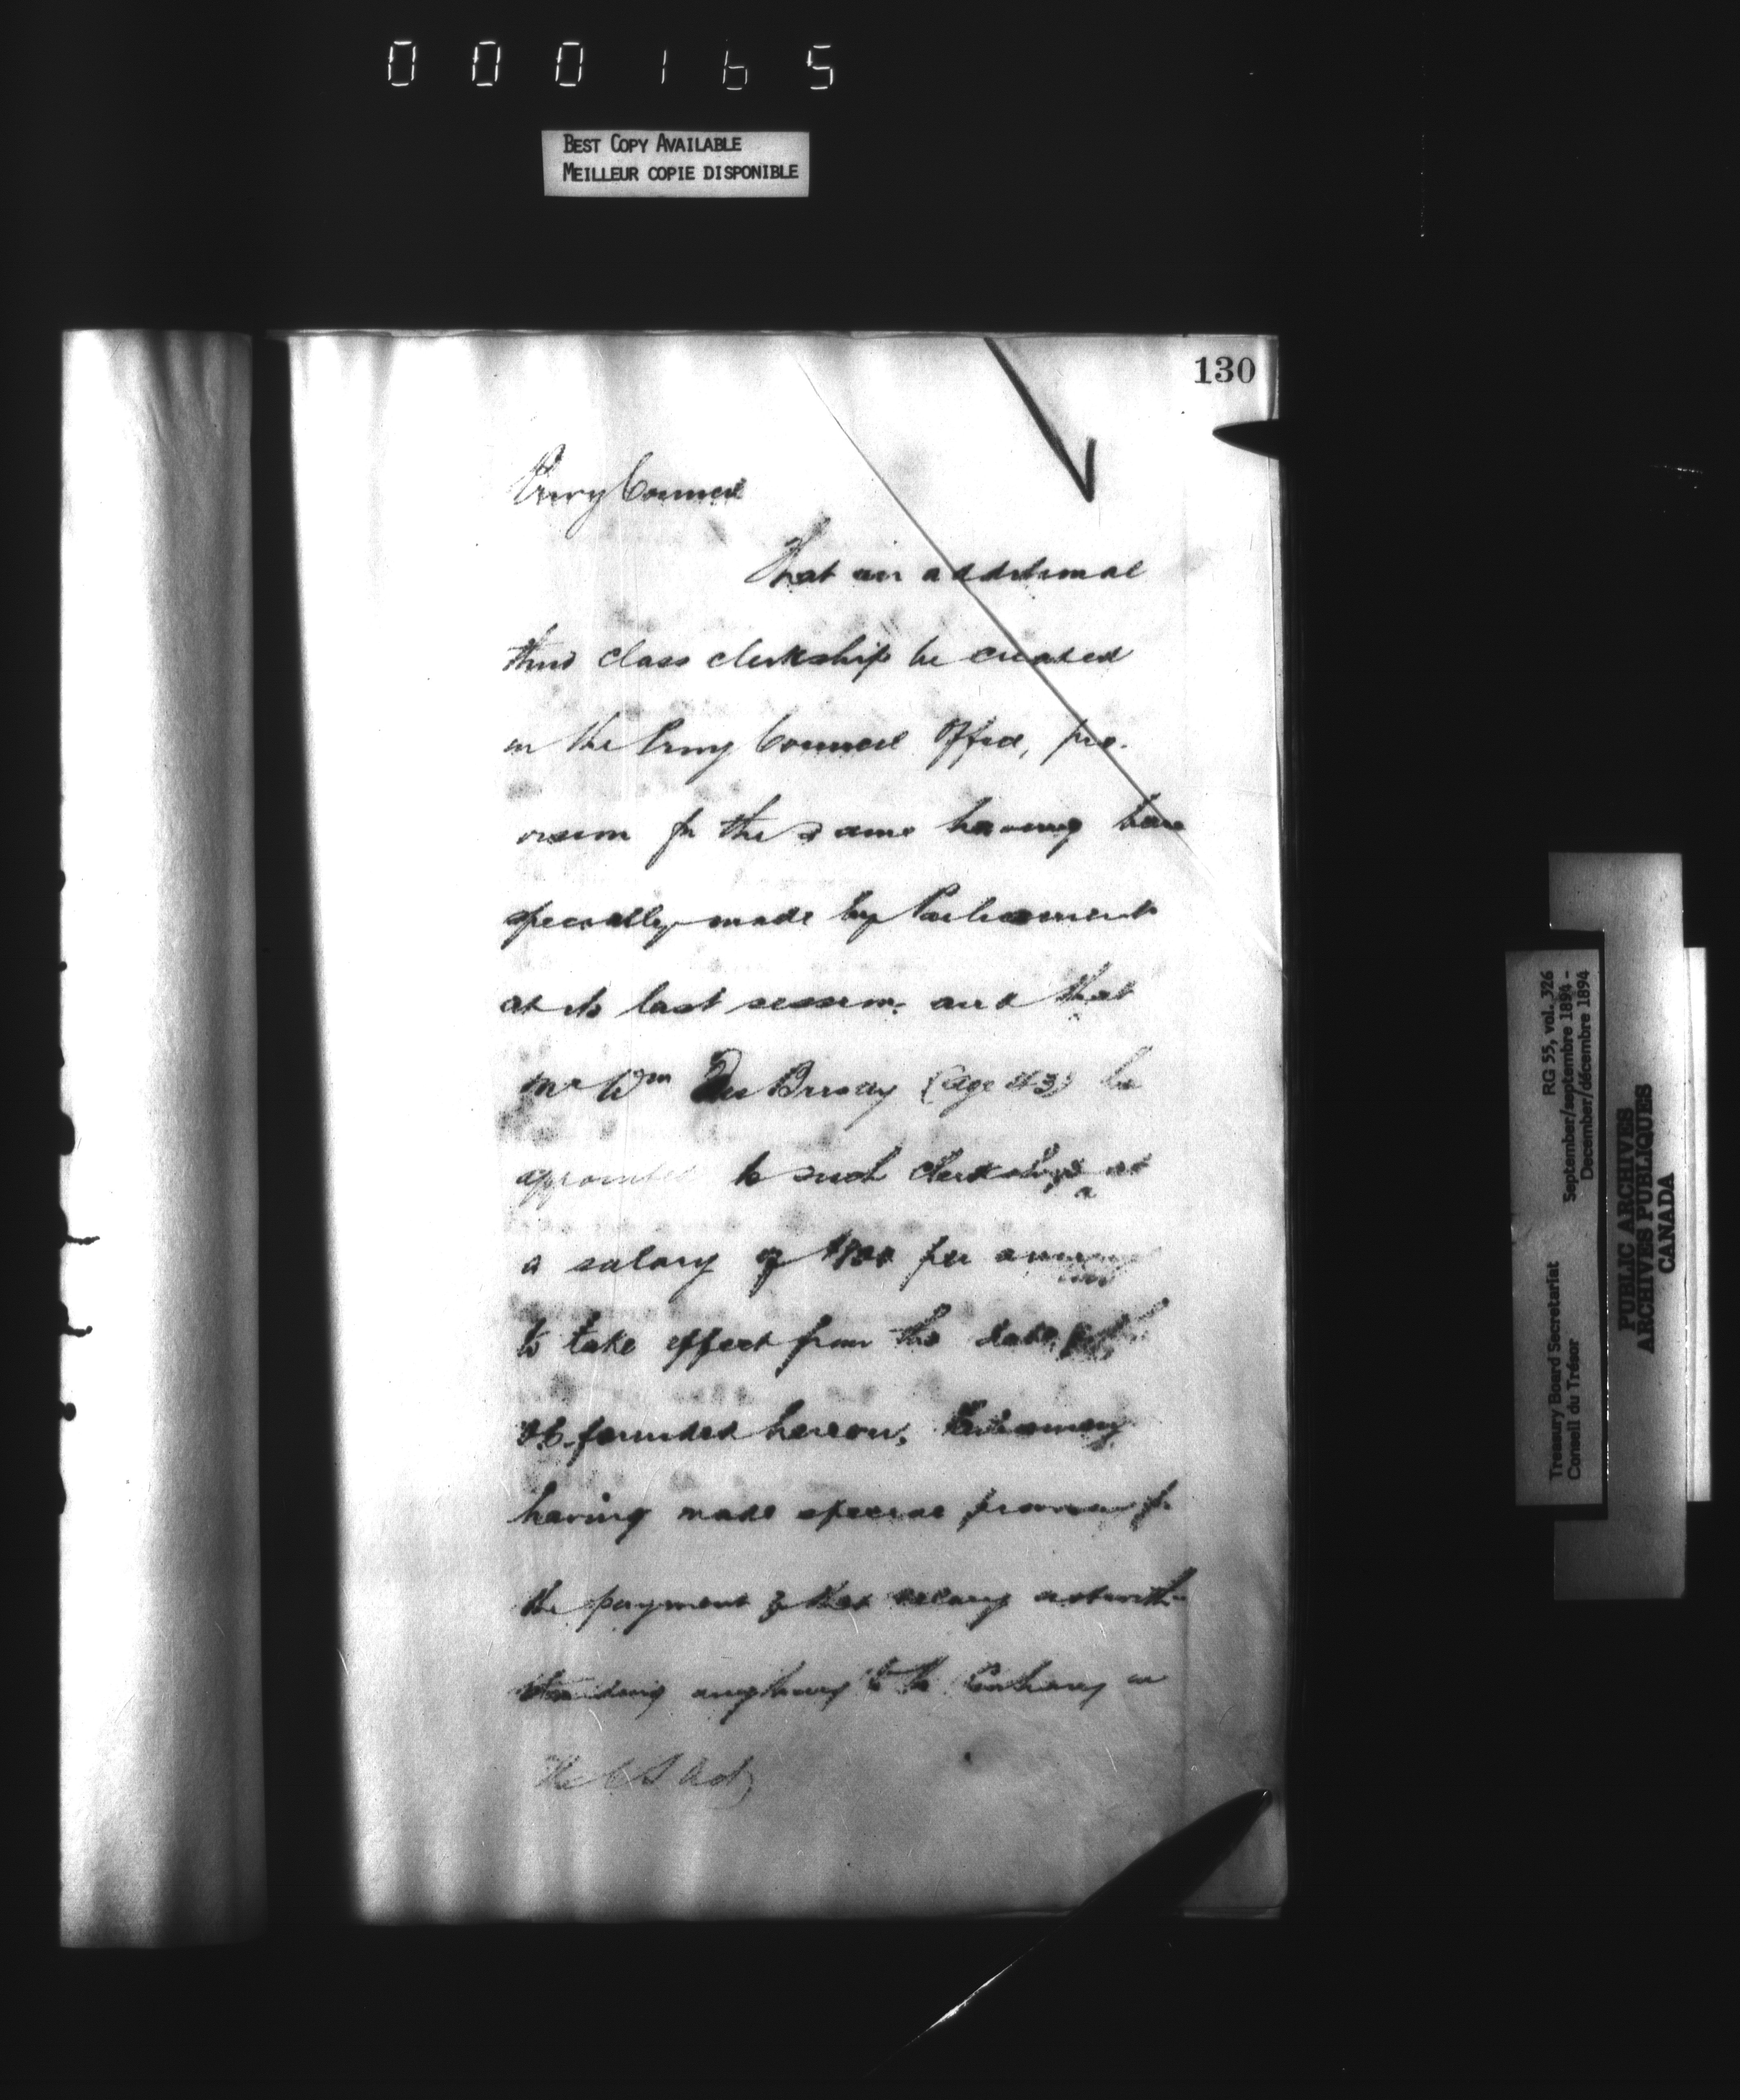 000165
BEST COPY AVAILABLE
MEILLEUR COPIE DISPONIBLE
130
Privy Council
That an additional
third class clerkship be created
in the Privy Council Office, pro-
vision for the same having been
specially made by Parliament
at its last session, and that
Mr Wm Des Brisay (age 43) be
appointed to such clerkship at
a salary of per annum
to take effect from the date of
O.C. founded hereon, Parliament
having made special provision for
the payment of that salary notwith-
standing anything to the Contrary in
the C S Act
RG 55, vol. 326
September/septembre 1894 -
December/décembre 1894
Treasury Board Secretariat
Conseil du Trésor
PUBLIC ARCHIVES
ARCHIVES PUBLIQUES
CANADA